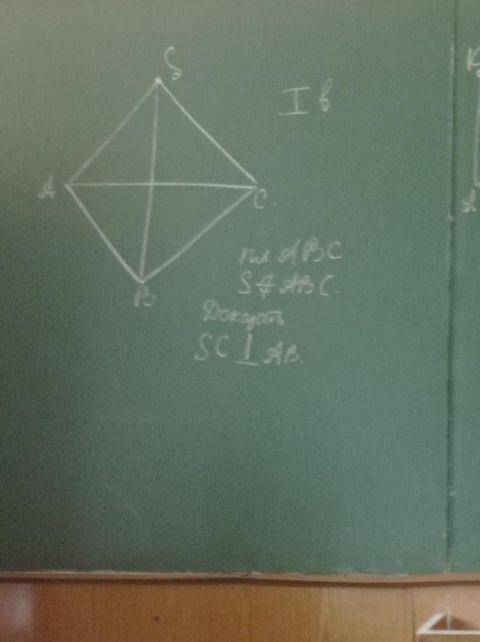 S
I в
A
C.
B
пл ABC
S∉ABC.
Доказать
SC ⊥ AB.